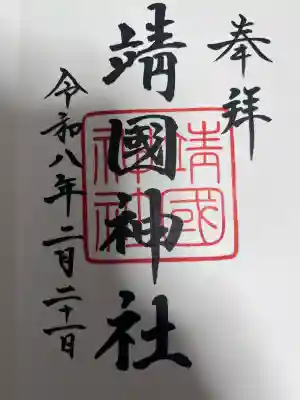 奉祥
靖國神社
令和八年二月二十一日
靖國
神社